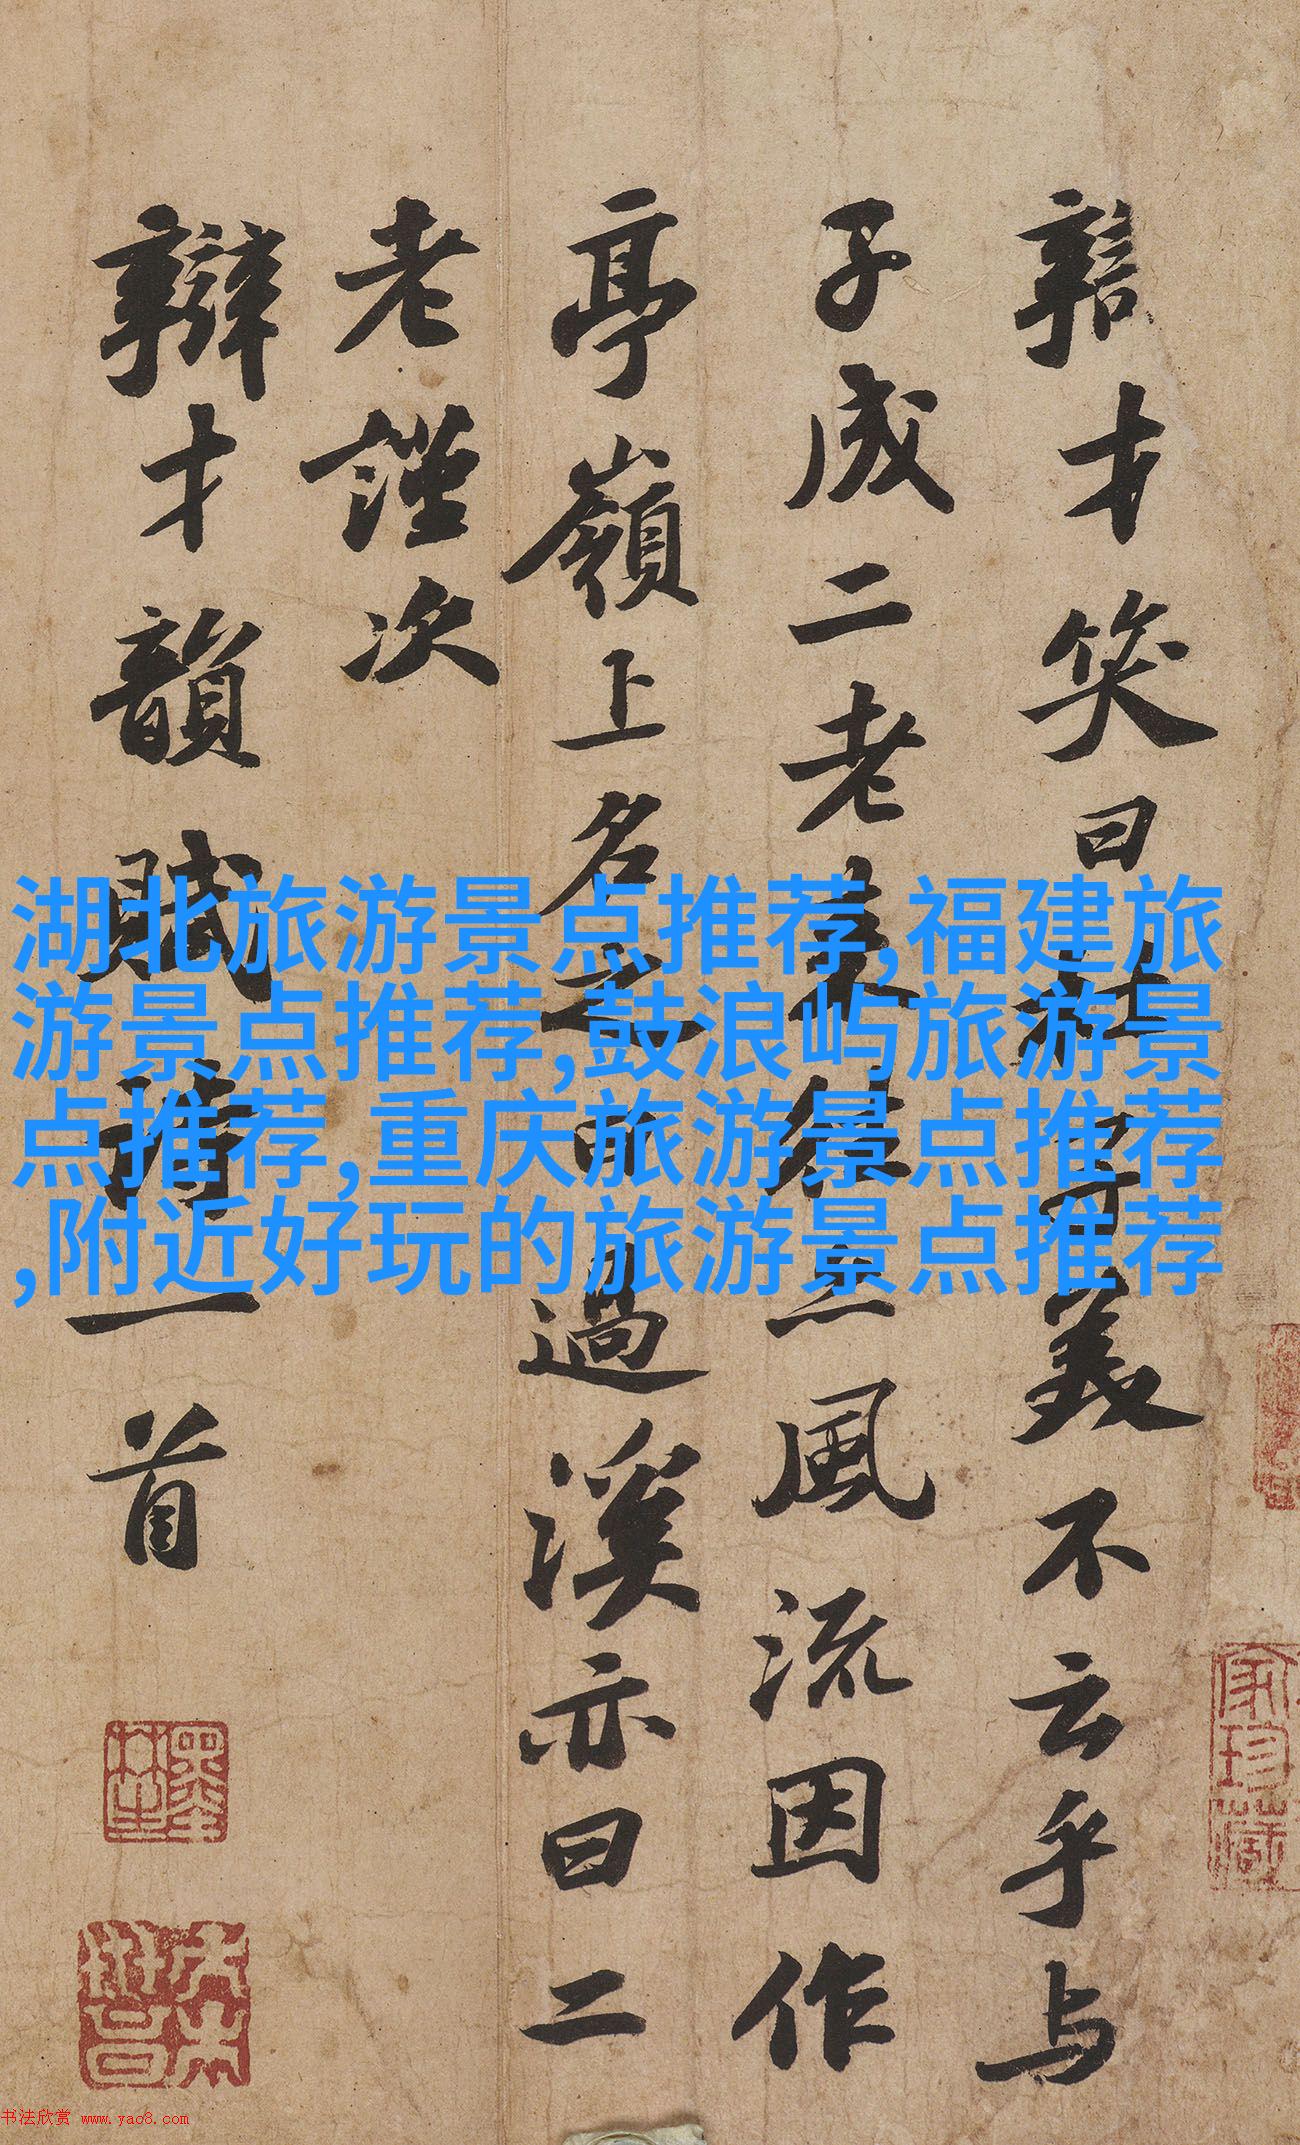 辯才笑曰杜子美不云乎与
子成二老来往亦風流因作
亭嶺上名之曰過溪亦曰二
老謹次
辯才韻賦詩一首
湖北旅游景点推荐,福建旅
游景点推荐,鼓浪屿旅游景
点推荐,重庆旅游景点推荐
,附近好玩的旅游景点推荐
家珍藏
书法欣赏 www.yac8.com